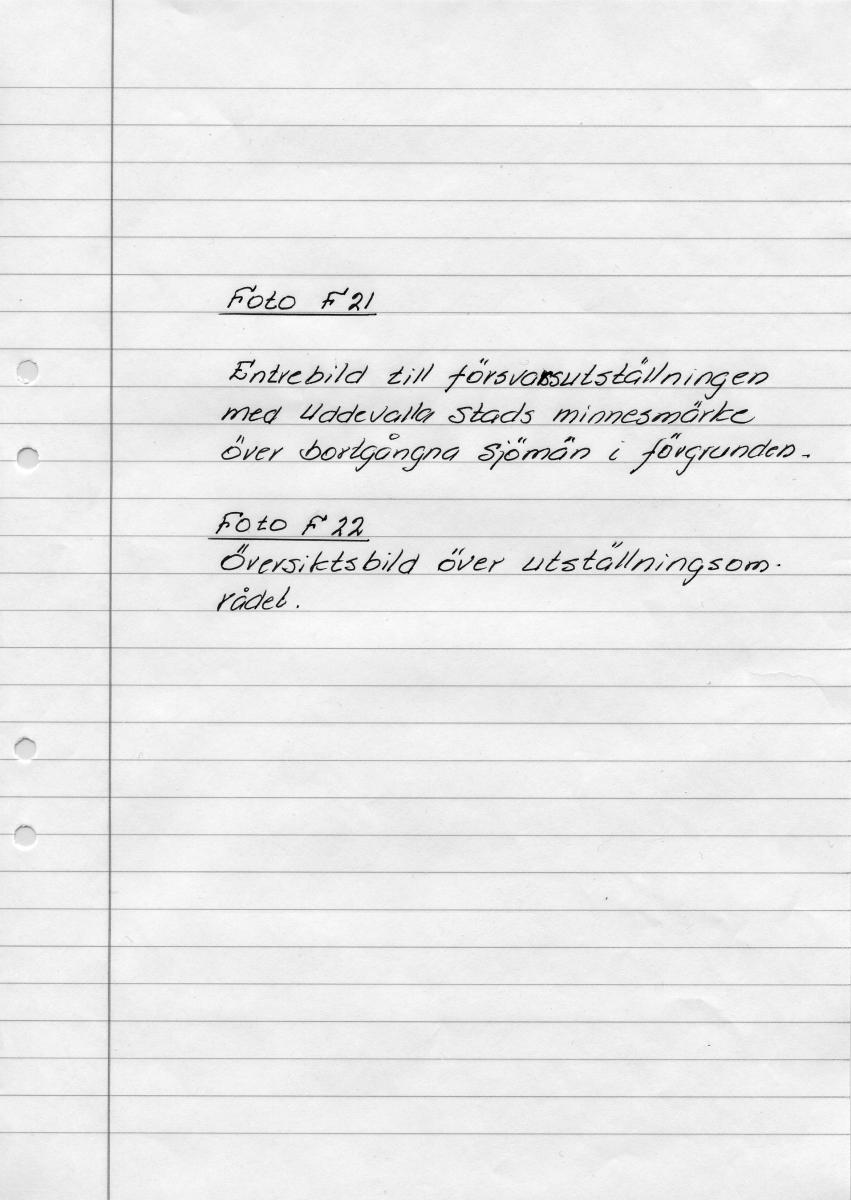 Foto F 21
Entrebild till försvarsutställningen
med Uddevalla Stads minnesmärke
över bortgångna Sjömän i förgrunden.
Foto F 22
Översiktsbild över utställningsom-
rådet.